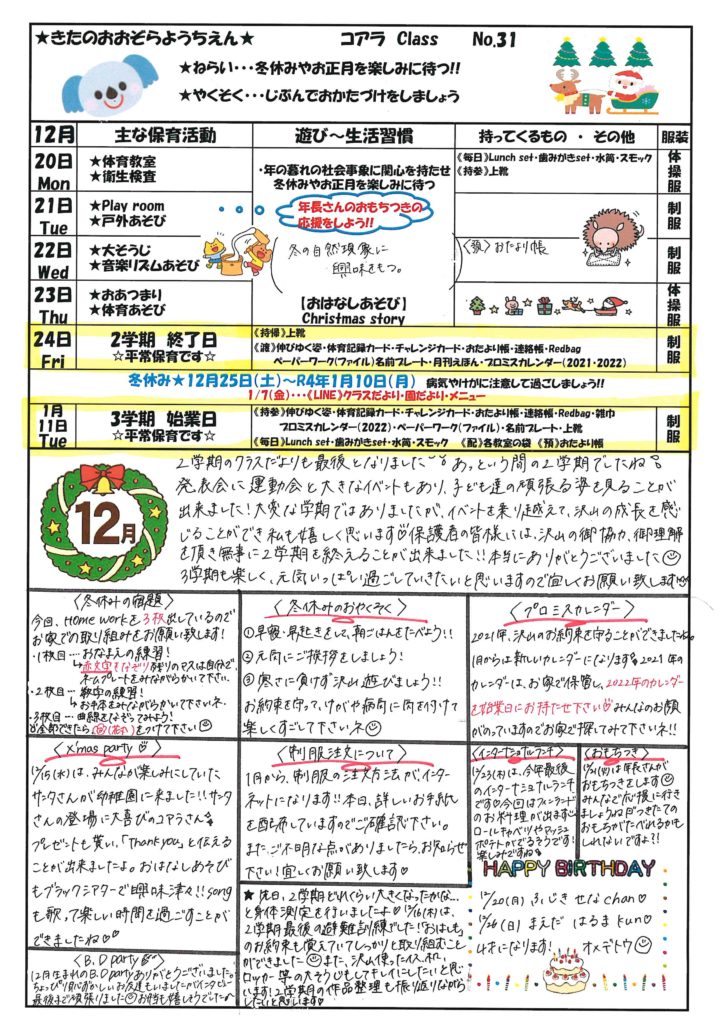 ★きたのおおぞらようちえん★ コアラ Class No.31
★ねらい・・・冬休みやお正月を楽しみに待つ!!
★やくそく・・・じぶんでおかたづけをしましょう
12月 主な保育活動 遊び～生活習慣 持ってくるもの ・ その他 服装
20日 Mon
★体育教室
★衛生検査
・年の暮れの社会事象に関心を持たせ
冬休みやお正月を楽しみに待つ
《毎日》Lunch set・歯みがきset・水筒・スモック
《持参》上靴
体操服
21日 Tue
★Play room
★戸外あそび
年長さんのおもちつきの
応援をしよう!!
制服
22日 Wed
★大そうじ
★音楽リズムあそび
冬の自然現象に
興味をもつ。
《預》おたより帳
制服
23日 Thu
★おあつまり
★体育あそび
【おはなしあそび】
Christmas story
体操服
24日 Fri
2学期 終了日
☆平常保育です☆
《持帰》上靴
《渡》伸びゆく姿・体育記録カード・チャレンジカード・おたより帳・連絡帳・Redbag
ペーパーワーク(ファイル)名前プレート・月刊えほん・プロミスカレンダー(2021・2022)
制服
冬休み★12月25日(土)～R4年1月10日(月) 病気やけがに注意して過ごしましょう!!
1/7(金)・・・《LINE》クラスだより・園だより・メニュー
1月11日 Tue
3学期 始業日
☆平常保育です☆
《持参》伸びゆく姿・体育記録カード・チャレンジカード・おたより帳・連絡帳・Redbag・雑巾
プロミスカレンダー(2022)・ペーパーワーク(ファイル)・名前プレート・上靴
《毎日》Lunch set・歯みがきset・水筒・スモック 《配》各教室の袋 《預》おたより帳
制服
12月
2学期のクラスだよりも最後となりました あっという間の2学期でしたね
発表会に運動会と大きなイベントもあり、子ども達の頑張る姿を見ることが
出来ました!大変な学期ではありましたが、イベントを乗り越えて、沢山の成長を感
じることができ私も嬉しく思います♡保護者の皆様には、沢山の御協力、御理解
を頂き無事に2学期を終えることが出来ました!!本当にありがとうございました
3学期も楽しく、元気いっぱい過ごしていきたいと思いますので宜しくお願い致します
〈冬休みの宿題〉
今回、Home workを3枚出しているので
お家での取り組みをお願い致します!
・1枚目…おなまえの練習!
↳赤文字をなぞり残りのマスは自分で、
ネームプレートをみながらかいて下さい。
・2枚目…数字の練習!
↳お手本をみながらかいて下さいネ。
・3枚目…曲線をなぞってみよう!
☆全部できたら(花丸)をつけて下さい
〈冬休みのおやくそく〉
①早寝・早起きをして、朝ごはんをたべよう!!
②元気にご挨拶をしましょう!
③寒さに負けず沢山遊びましょう!!
お約束を守って、けがや病気に気を付けて
楽しくすごして下さいネ
〈プロミスカレンダー〉
2021年、沢山のお約束を守ることができましたね。
1月からは新しいカレンダーになります 2021年の
カレンダーは、お家で保管し、2022年のカレンダー
を始業日にお持たせ下さい♡みんなのお顔
がのっていますのでお家で探してみて下さいネ!!
〈X'mas party〉
12/15(水)は、みんなが楽しみにしていた
サンタさんが幼稚園に来ました!!サンタ
さんの登場に大喜びのコアラさん
プレゼントも貰い、「Thank you」と伝える
ことが出来ましたよ。おはなしあそび
もブラックシアターで興味津々!!song
も歌って楽しい時間を過ごすことが
できましたね♡
〈制服注文について〉
1月から、制服の注文方法が、インター
ネットになります!!本日、詳しいお手紙
を配布していますのでご確認下さい。
また、ご不明な点がありましたら、お知らせ
下さい!宜しくお願い致します♡
〈インターナショナルランチ〉
12/23(木)は、今年最後
のインターナショナルランチ
です♡今回はフィンランド
のお料理が出ます
ロールキャベツやマッシュ
ポテトがでるそうです!
楽しみですね
〈おもちつき〉
12/21(火)は年長さんが
おもちつきをします
みんなで応援に行き
ましょうね♡つきたての
おもちがたべれるかも
しれないですよ?!
〈B.D party〉
12月生まれのB.D partyありがとうございました。
ちょっぴり恥ずかしいお友達もいましたがインタビュー
最後まで頑張りました お弁当も嬉しそうでしたね
★先日、2学期どれくらい大きくなったかな…
と身体測定を行いましたよ♡12/16(木)は、
2学期最後の避難訓練でした!「おはしも」
のお約束も覚えていてしっかりと取り組むこと
ができました また、沢山使ったイス、机、
ロッカー等のそうじもしてキレイにしたいと思い
ます!2学期の作品整理も振り返りながら
したいと思います
HAPPY BIRTHDAY
12/20(月) ふじき せな chan♡
12/26(日) まえだ はるま kun♡
4才になります! オメデトウ